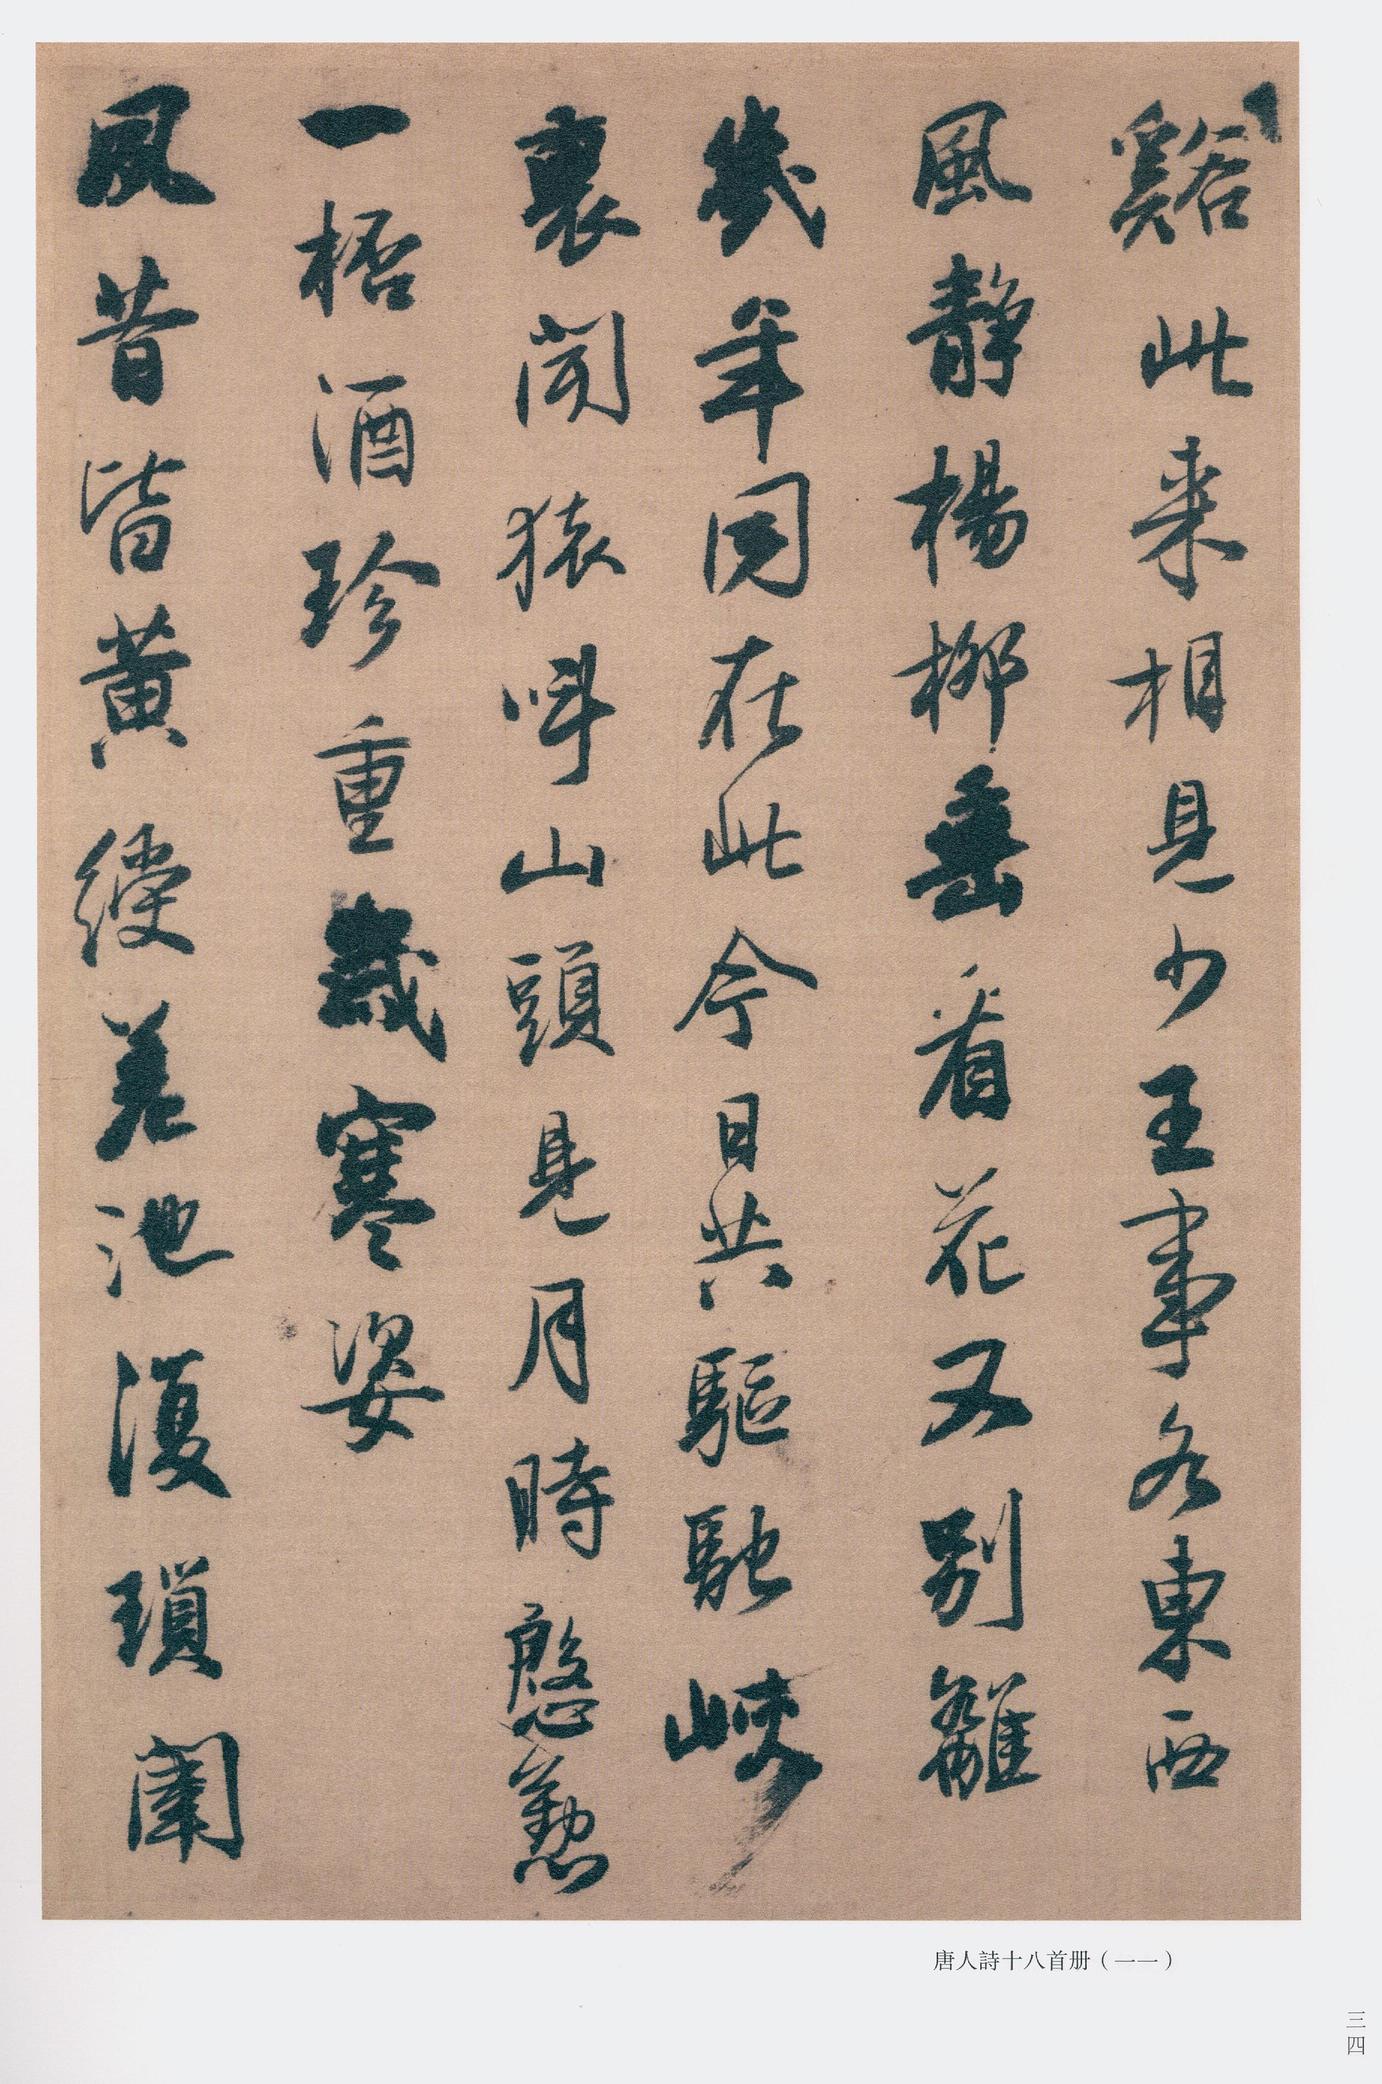 谿此来相見少王事各東西
風静楊柳垂看花又别離
幾年同在此今日共驅馳峽
裏聞猿叫山頭見月時慇懃
一桮酒珍重歲寒姿
鳳昔皆黄綬差池復瑣闈
唐人詩十八首册（一一）
三四